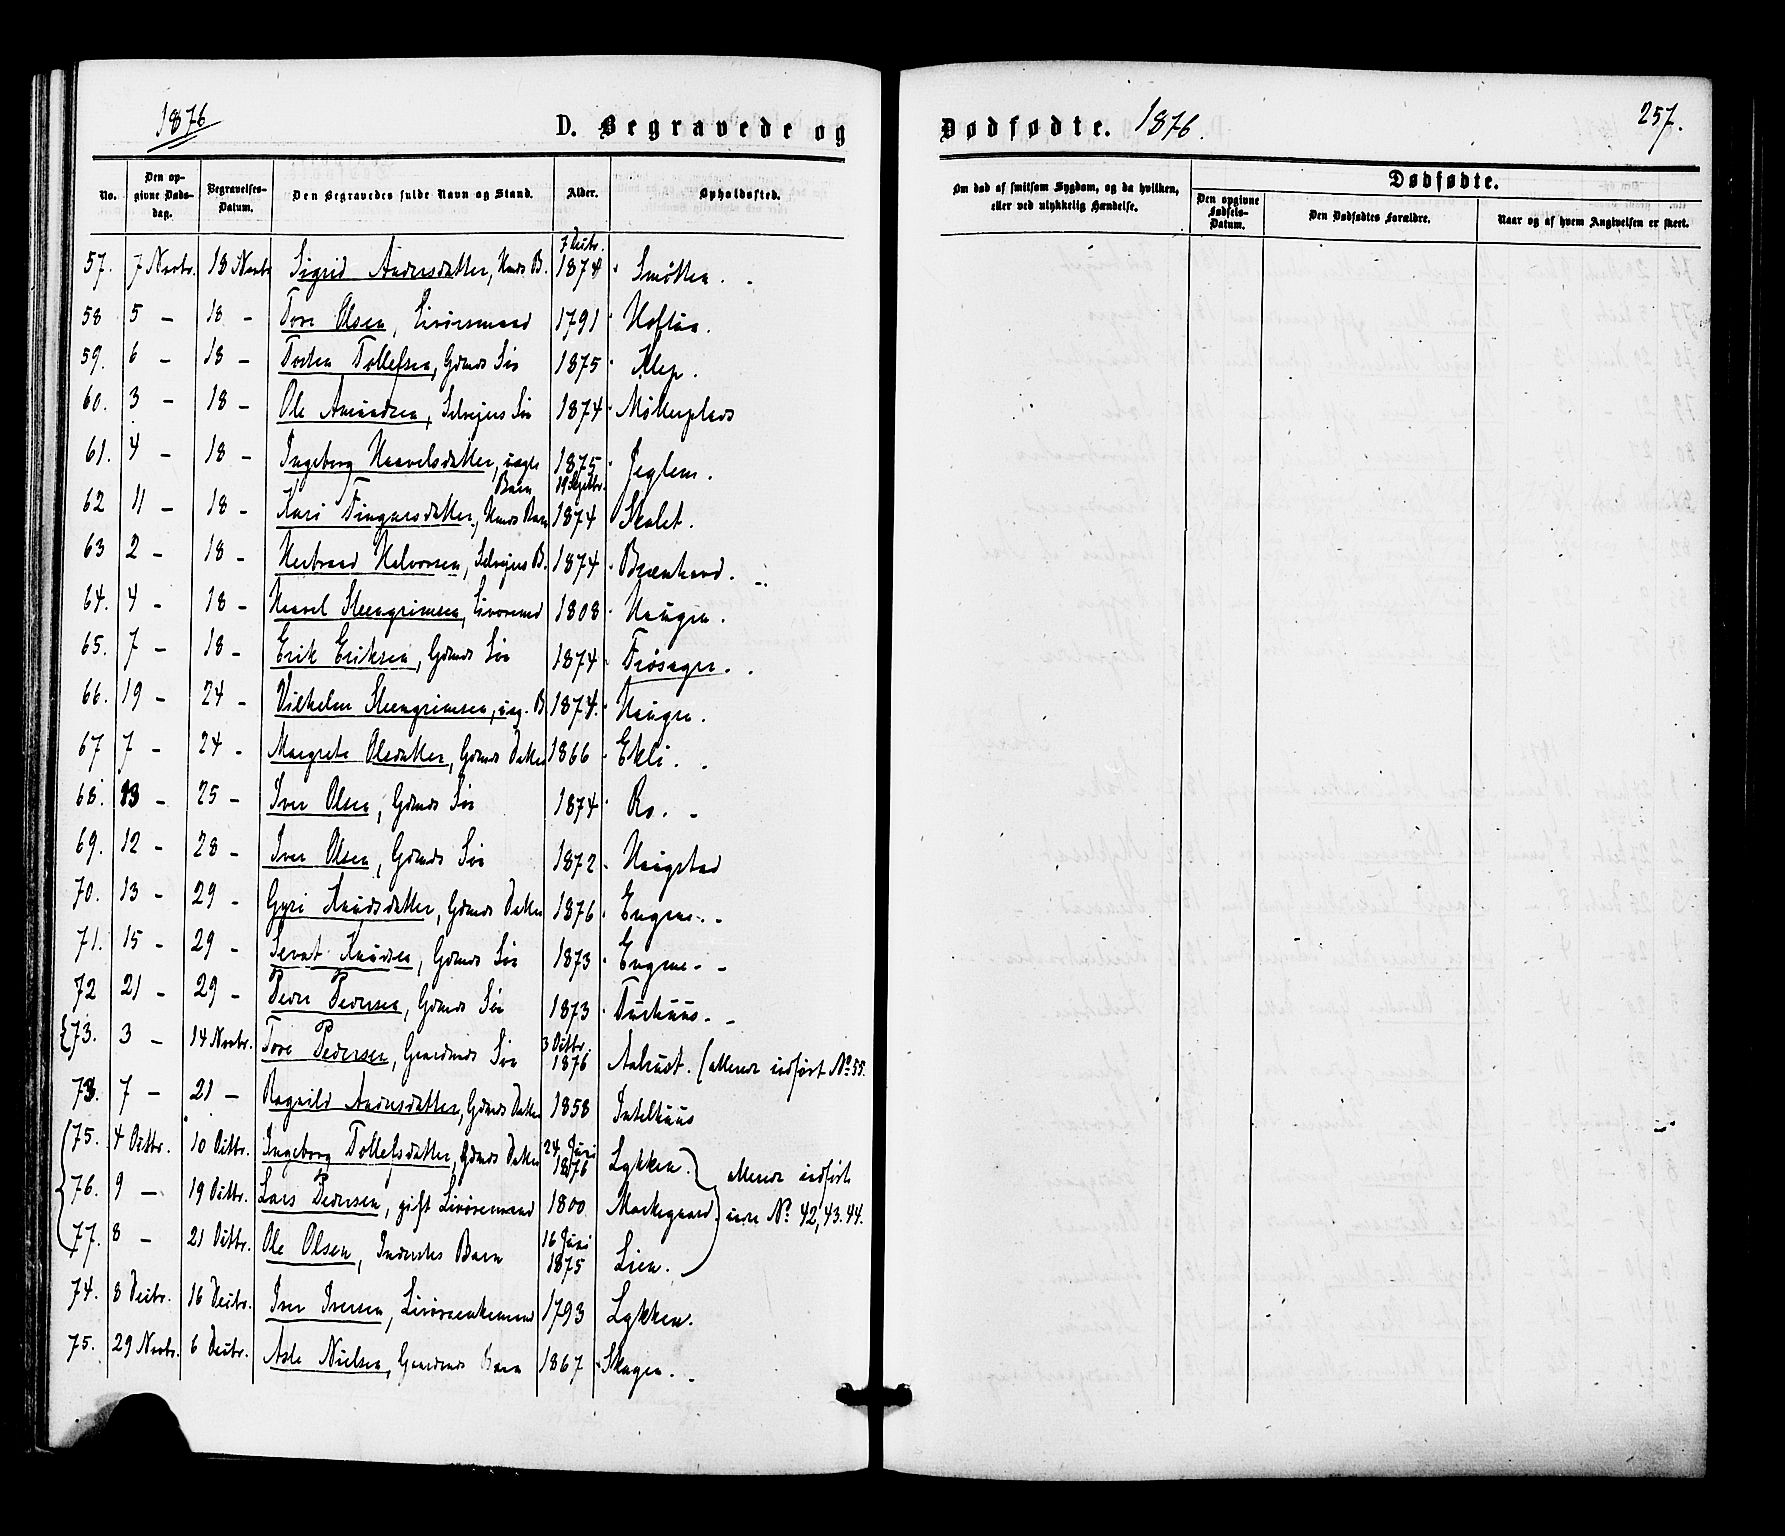 1876
D. Begravede og
Dødfødte. 1876.
257.
No. Den opgivne Dødsdag. Begravelses-Datum. Den Begravedes fulde Navn og Stand. Alder. Opholdssted.
Om død af smitsom Sygdom, og da hvilken, eller ved ulykkelig Hændelse.
Dødfødte.
Den opgivne Fødsels-Datum. Den Dødfødtes Forældre. Naar og af hvem Angivelsen er skeet.
7 Decbr.
57. 7 Novbr. 18 Novbr Sigrid Andersdatter, Hmds B. 1874
58 5 - 18 - Tore Olsen, 1791
59. 6 - 18 - Tosten Tollefsen, Gdmds Søn 1875 Klep.
60. 3 - 18 - Ole Amundsen, Selvejers Søn 1874 Møllerplads
61. 4 - 18 - Ingeborg Haavelsdatter, uægte 1875 Jeglem.
Barn 19 Septbr.
62 11 - 18 - Kari Fingarsdatter, Hmds Barn 1874 Skolet.
63 2 - 18 - Herbrand Halvorsen, Selvejers B. 1874
64. 4 - 18 - Haavel Steengrimsen, 1808 Haugen.
65. 7 - 18 - Erik Eriksen, Gdmds Søn 1874
66. 19 - 24 - Vilhelm Steengrimsen, uæg. B. 1874. Haugen.
67 7 - 24 - Margrete Olsdatter, Gdmds Datter 1866 Ekli.
68. 13 - 25 - Iver Olsen, Gdmds Søn 1874 Ro.
69. 12 - 28 - Iver Olsen, Gdmds Søn 1872 Haugstad
70. 13 - 29 - Gyri Knudsdatter, Gdmds Datter 1876 Engene.
71. 15 - 29 - Sevat Knudsen, Gdmds Søn 1873 Engene.
72 21 - 29 - Peder Pedersen, Gdmds Søn 1873
3 Octbr.
73. 3 - 14 Novbr. Tore Pedersen, Gaardmds Søn 1876 (allerede indført No 55.
73. 7 - 21 - Ragnild Andersdatter, Gdmds Datter 1858
24 Juni
75. 4 Octbr. 10 Octbr. Ingeborg Tollefsdatter, Gdmds Datter 1876 Lykken. allerede indført
76. 9 - 19 Octbr. Lars Pedersen, gift Livøremand 1800 Moekegaard. No 42, 43. 44.
16 Juni
77. 8 - 21 Octbr. Ole Olsen, Inderstes Barn 1875 Lien.
74. 8 Decbr. 16 Decbr. Iver Iversen, 1793 Lykken.
75. 29 Novbr. 6 Decbr. Asle Nielsen, Gaardmds Barn 1867 Skagen.